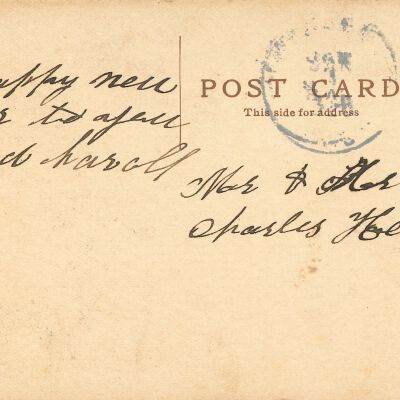 appy new
r to you
d haroll
POST CARD
This side for address
JAN
Mr & Mr
Charles He